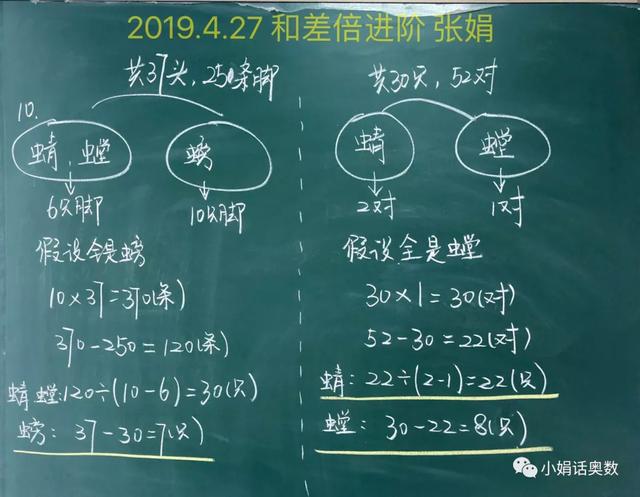 2019.4.27 和差倍进阶 张娟
共37头，250条脚
10.
蜻、螳
螃
6只脚
10只脚
假设全是螃
10×37=370(条)
370-250=120(条)
蜻螳:120÷(10-6)=30(只)
螃：37-30=7(只)
共30只，52对
蜻
螳
2对
1对
假设全是螳
30×1=30(对)
52-30=22(对)
蜻：22÷(2-1)=22(只)
螳：30-22=8(只)
小娟话奥数